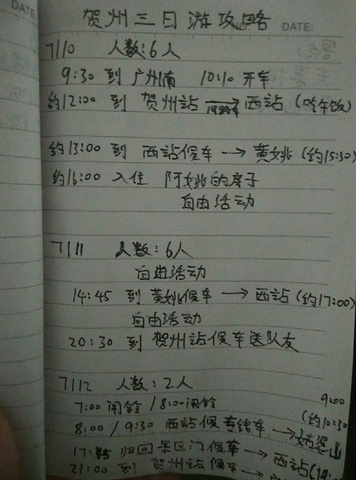 贺州三日游攻略
DATE:
DATE:
7/10 人数:6人
9:30 到 广州南 10:10 开车
约12:00 到 贺州站 → 西站 (吃午饭)
约13:00 到 西站候车 → 黄姚 (约15:30)
约16:00 入住 阿姚的房子
自由活动
7/11 人数:6人
自由活动
14:45 到 黄姚候车 → 西站 (约17:00)
自由活动
20:30 到 贺州站候车送队友
7/12 人数:2人
7:00 闹铃 / 8:00闹铃 9:00
8:00 / 9:30 西站候专线车 → 姑婆山 (约10:30
17:45 归回景区门候车 → 西站
21:00 到 贺州站候车